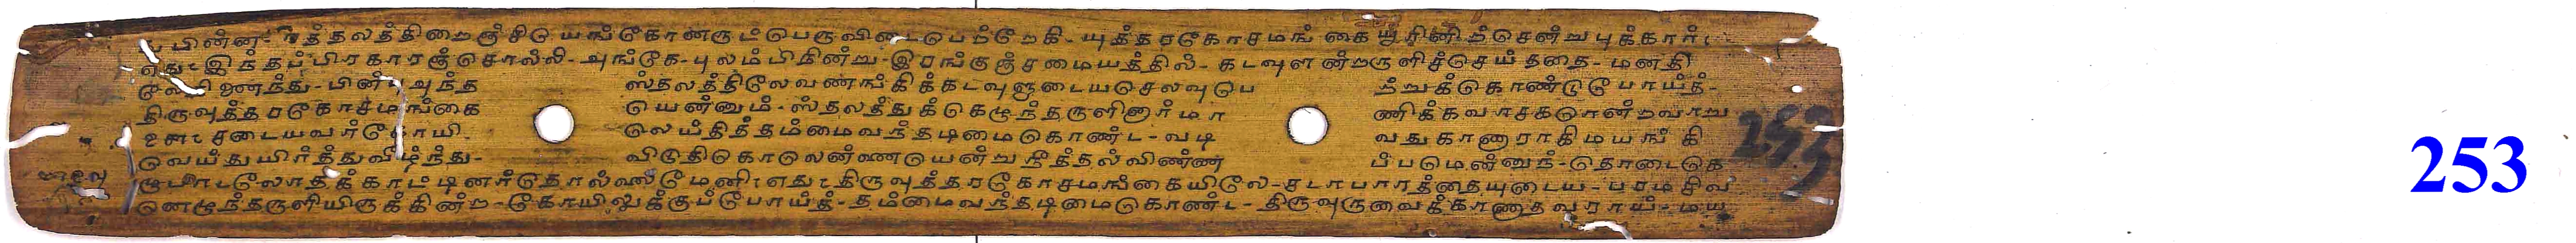 த்தலத்திறைஞ்சி யங்கோனரும்பெருவிடைபெற்றேகி - யுத்தரகோசமங்கையூரினிற்சென்று புக்கார்
எது - இந்தப்பிரகாரஞ்சொல்லி - அங்கே - புலம்பிநின்று - இரங்குஞ்சமையத்தில் - கடவுளன்றருளிச்செய்ததை - மனதி
ணைந்து - பின்பு அந்த ஸ்தலத்திலேவணங்கிக்கடவுளுடையசெலவுபெ ற்றுக்கொண்டுபோய்த் -
திருவுத்தரகோசமங்கை யென்னும் - ஸ்தலத்துக்கெழுந்தருளினார் மா ணிக்கவாசகரென்றவாறு
௨௩ சடையவர்கோயி லெய்தித்தம்மைவந்தடிமைகொண்ட - வடி வதுகாணாராகிமயங்கி
வெய்துயிர்த்துவீழ்ந்து - விடுதிகொலெண்ணயென்று நீத்தல்விண்ண ப்பமென்னுந் - தொடைக
எது - திருவுத்தரகோசமங்கையிலே - சடாபாரத்தையுடைய - பரமசிவ
னெழுந்தருளியிருக்கின்ற - கோயிலுக்குப்போய்த் - தம்மைவந்தடிமைகொண்ட - திருவுருவைக்காணாதவராய் - மய
253
253